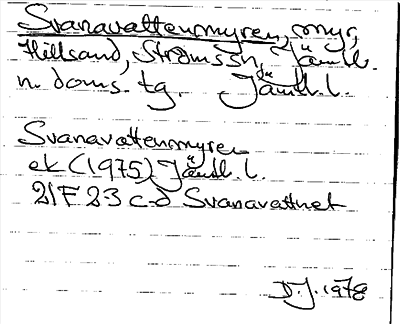 Svanavattenmyren, myr,
Hillsand, Strömss n, Jämtl.
n. doms. tg. Jämtl. l.
Svanavattenmyren
ek (1975) Jämtl. l.
21F 23 c-d Svanavattnet
D.J. 1978